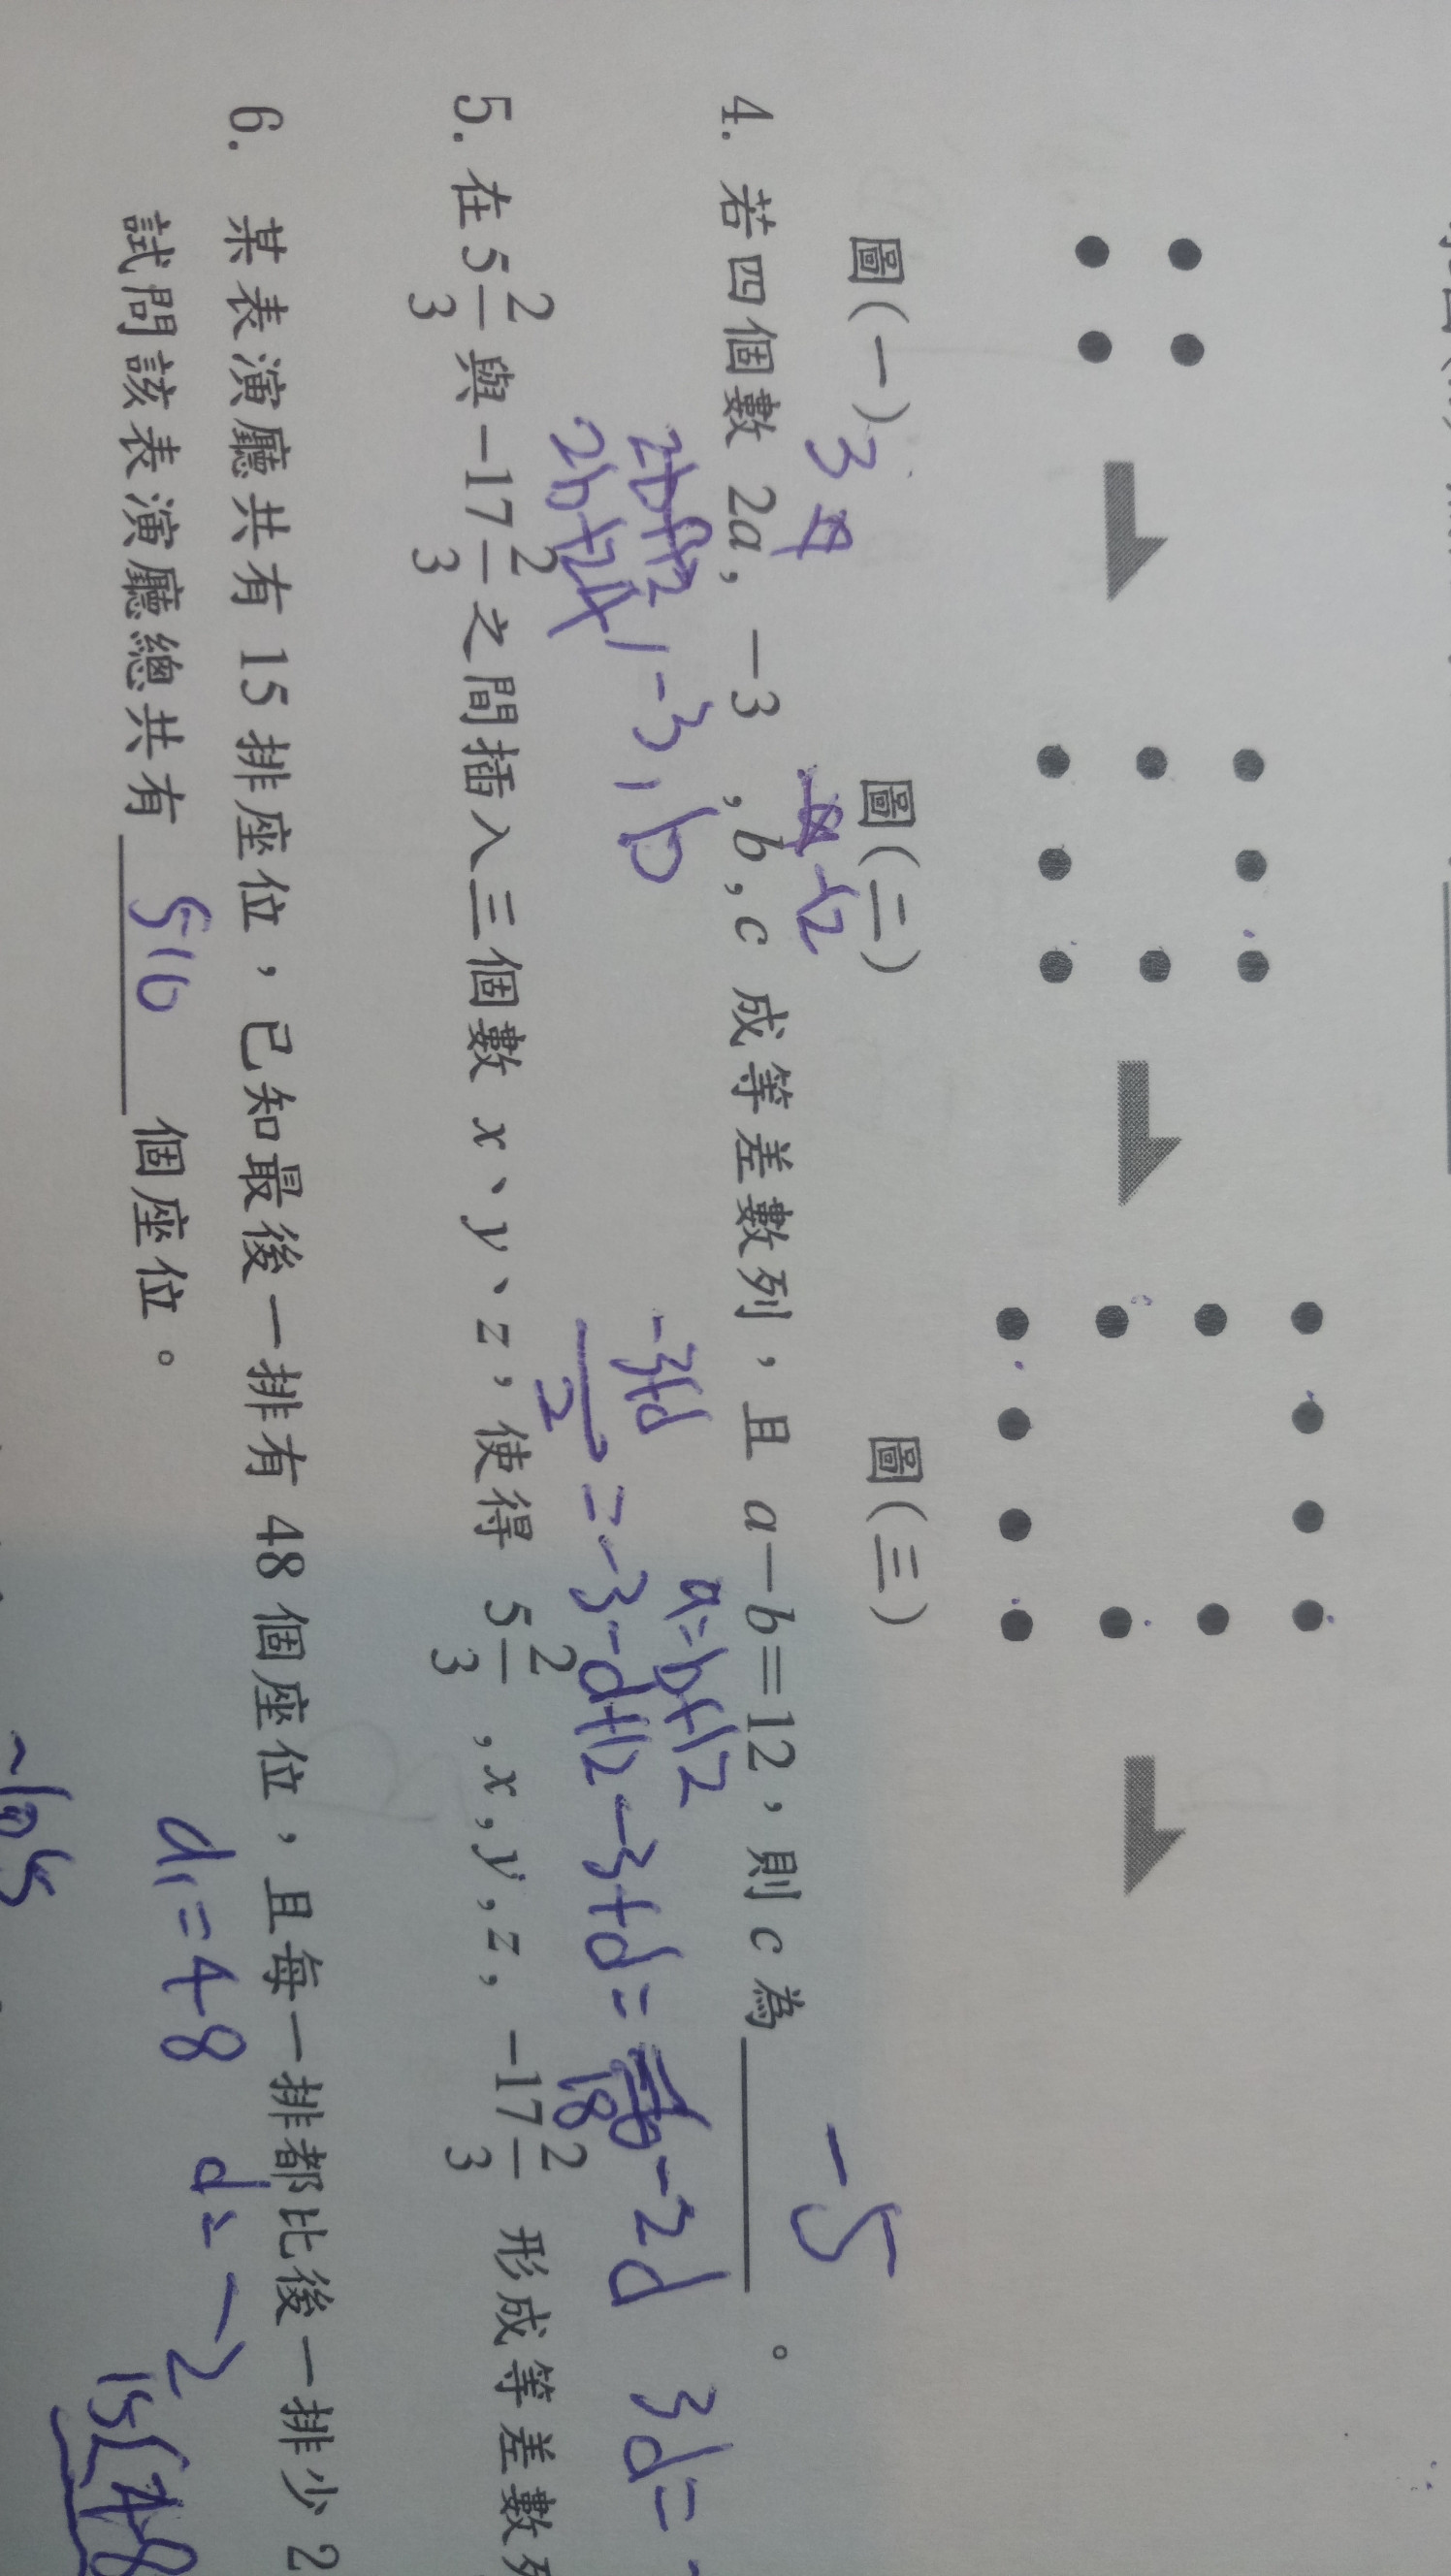 圖(一) 圖(二) 圖(三)
3
-12
4. 若四個數 2a, -3 ,b,c 成等差數列，且 a-b=12，則 c 為 -5 。
2b+24, -3, b
a=b+12
-3+d
2
=-3-d+12
-3+d=18-2d
3d=
5. 在5 2/3 與-17 2/3 之間插入三個數 x、y、z，使得 5 2/3 ,x,y,z, -17 2/3 形成等差數列
6. 某表演廳共有 15 排座位，已知最後一排有 48 個座位，且每一排都比後一排少 2
試問該表演廳總共有 510 個座位。
a₁=48 d=-2